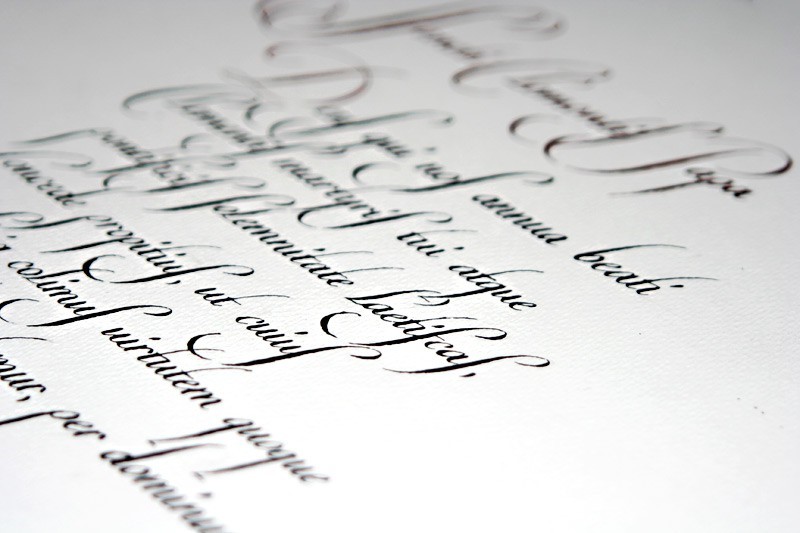 Sancti Clementis Papa
Deus qui nos annua beati
Clementis martyris tui atque
pontificis solemnitate laetificas,
concede propitius, ut cuius
colimus uirtutem quoque
mur, per dominu